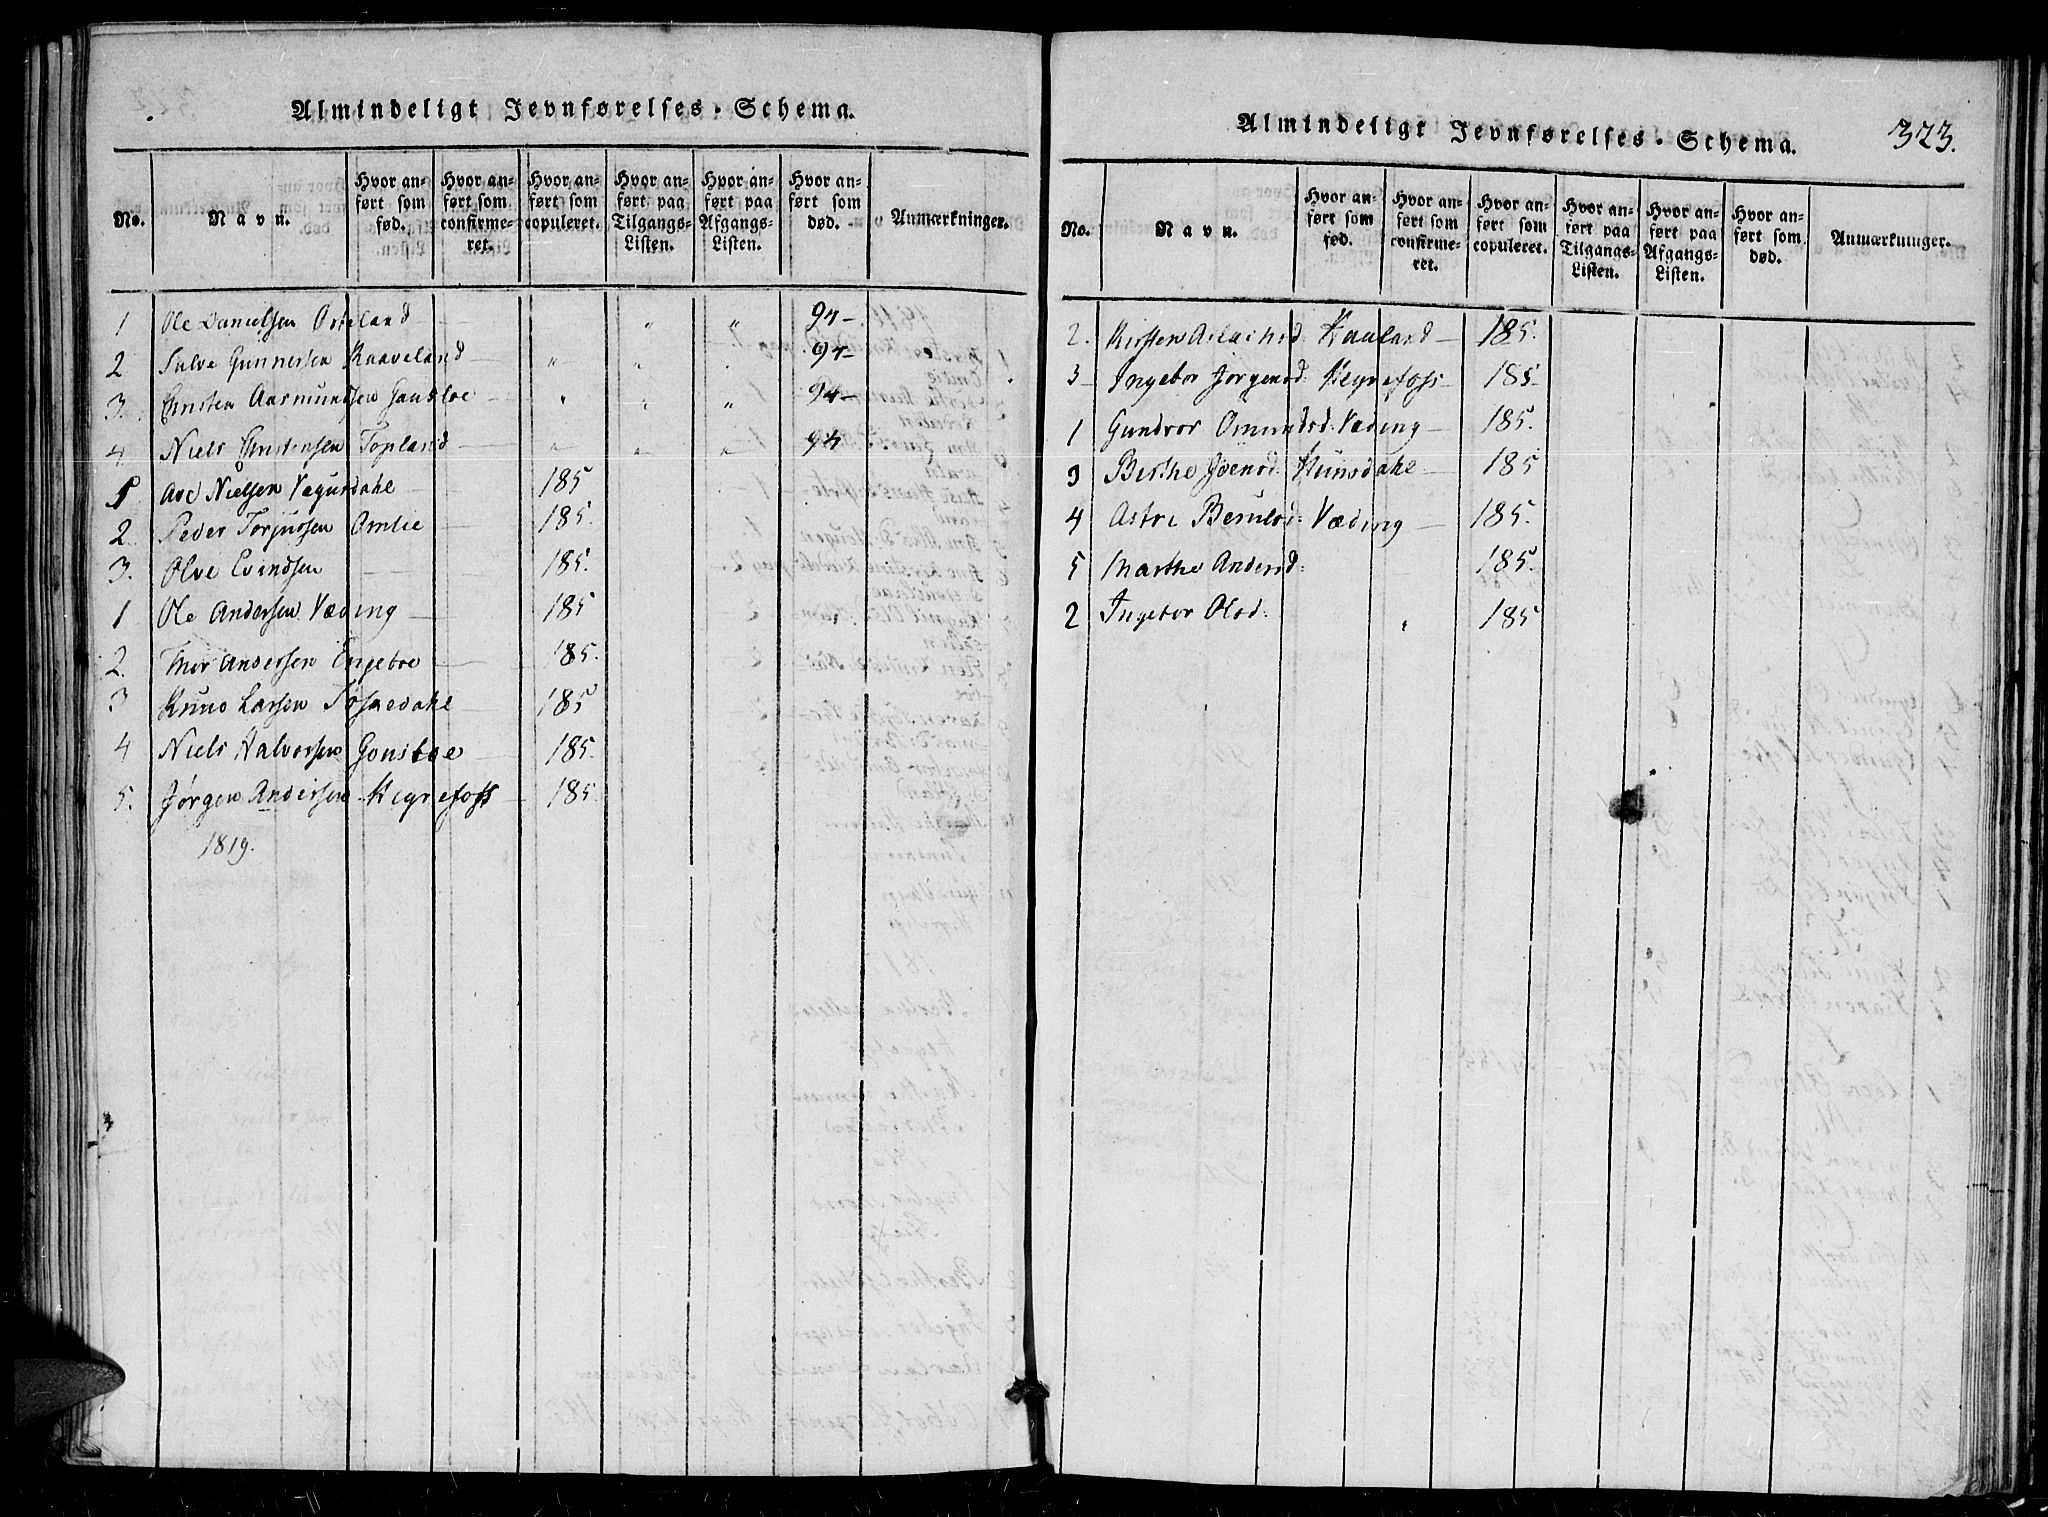 Almindeligt Jevnførelses-Schema.
No. Navn. Hvor anført som fød. Hvor anført som confirmeret. Hvor anført som copuleret. Hvor anført paa Tilgangs-Listen. Hvor anført paa Afgangs-Listen. Hvor anført som død. Anmærkninger.
1 Ole Danielsen Oseland " " 94-
2 Salve Gunnersen Raaveland " " 94-
3. Christen Aasmundsen " " " 94-
4. Niels Christensen Topland " " " 94
1 Ave Nielsen Vegusdahl 185
2 Peder Torjussen Omlie 185.
3. Olve Evindsen 185.
1 Ole Andersen Væding 185
2. Thor Andersen Engeboe 185.
3 Knud Larsen 185
4 Niels Halvorsen Gonsloe 185.
5. Jørgen Andersen Heyrefoss 185.
1819.
Almindeligt Jevnførelses-Schema. 323.
No. Navn. Hvor anført som fød. Hvor anført som confirmeret. Hvor anført som copuleret. Hvor anført paa Tilgangs-Listen. Hvor anført paa Afgangs-Listen. Hvor anført som død. Anmærkninger.
2. Kirsten Aslachsd: Haaland 185.
3 Ingebor Jørgensd: Heyrefoss 185
1 Gundvor Omundsd: Væding 185.
3 Berthe Joensd: Hunsdahl 185
4 Astri Væding 185.
5 Marthe Andersd: 185.
2 Ingebor Olsd: " 185